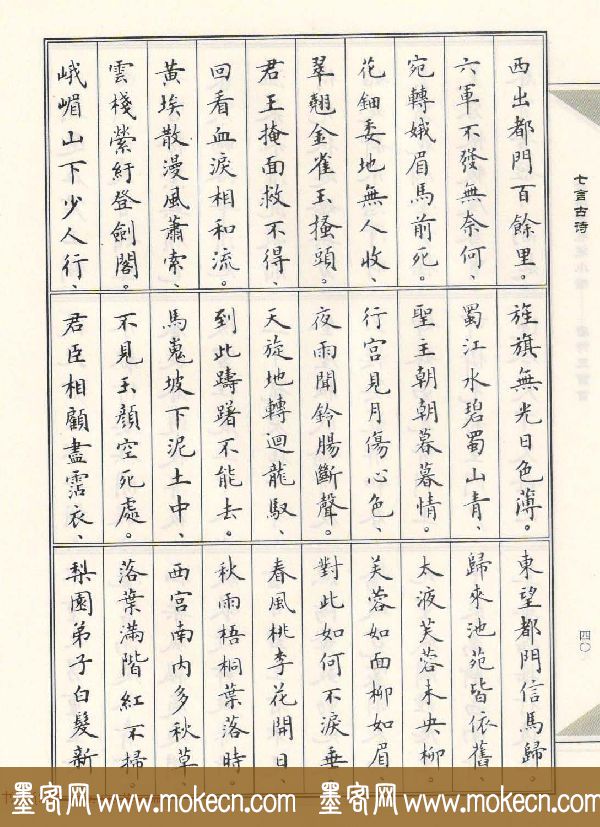 七言古詩
四〇
西出都門百餘里。
六軍不發無奈何、
宛轉娥眉馬前死。
花鈿委地無人收、
翠翹金雀玉搔頭。
君王掩面救不得、
回看血淚相和流。
黃埃散漫風蕭索、
雲棧縈紆登劍閣。
峨嵋山下少人行、
旌旗無光日色薄。
蜀江水碧蜀山青、
聖主朝朝暮暮情。
行宮見月傷心色、
夜雨聞鈴腸斷聲。
天旋地轉迴龍馭、
到此躊躇不能去。
馬嵬坡下泥土中、
不見玉顏空死處。
君臣相顧盡霑衣、
東望都門信馬歸。
歸來池苑皆依舊、
太液芙蓉未央柳。
芙蓉如面柳如眉、
對此如何不淚垂、
春風桃李花開日、
秋雨梧桐葉落時。
西宮南內多秋草、
落葉滿階紅不掃。
梨園弟子白髮新
墨客网 www.mokecn.com 墨客网 www.mokecn.com